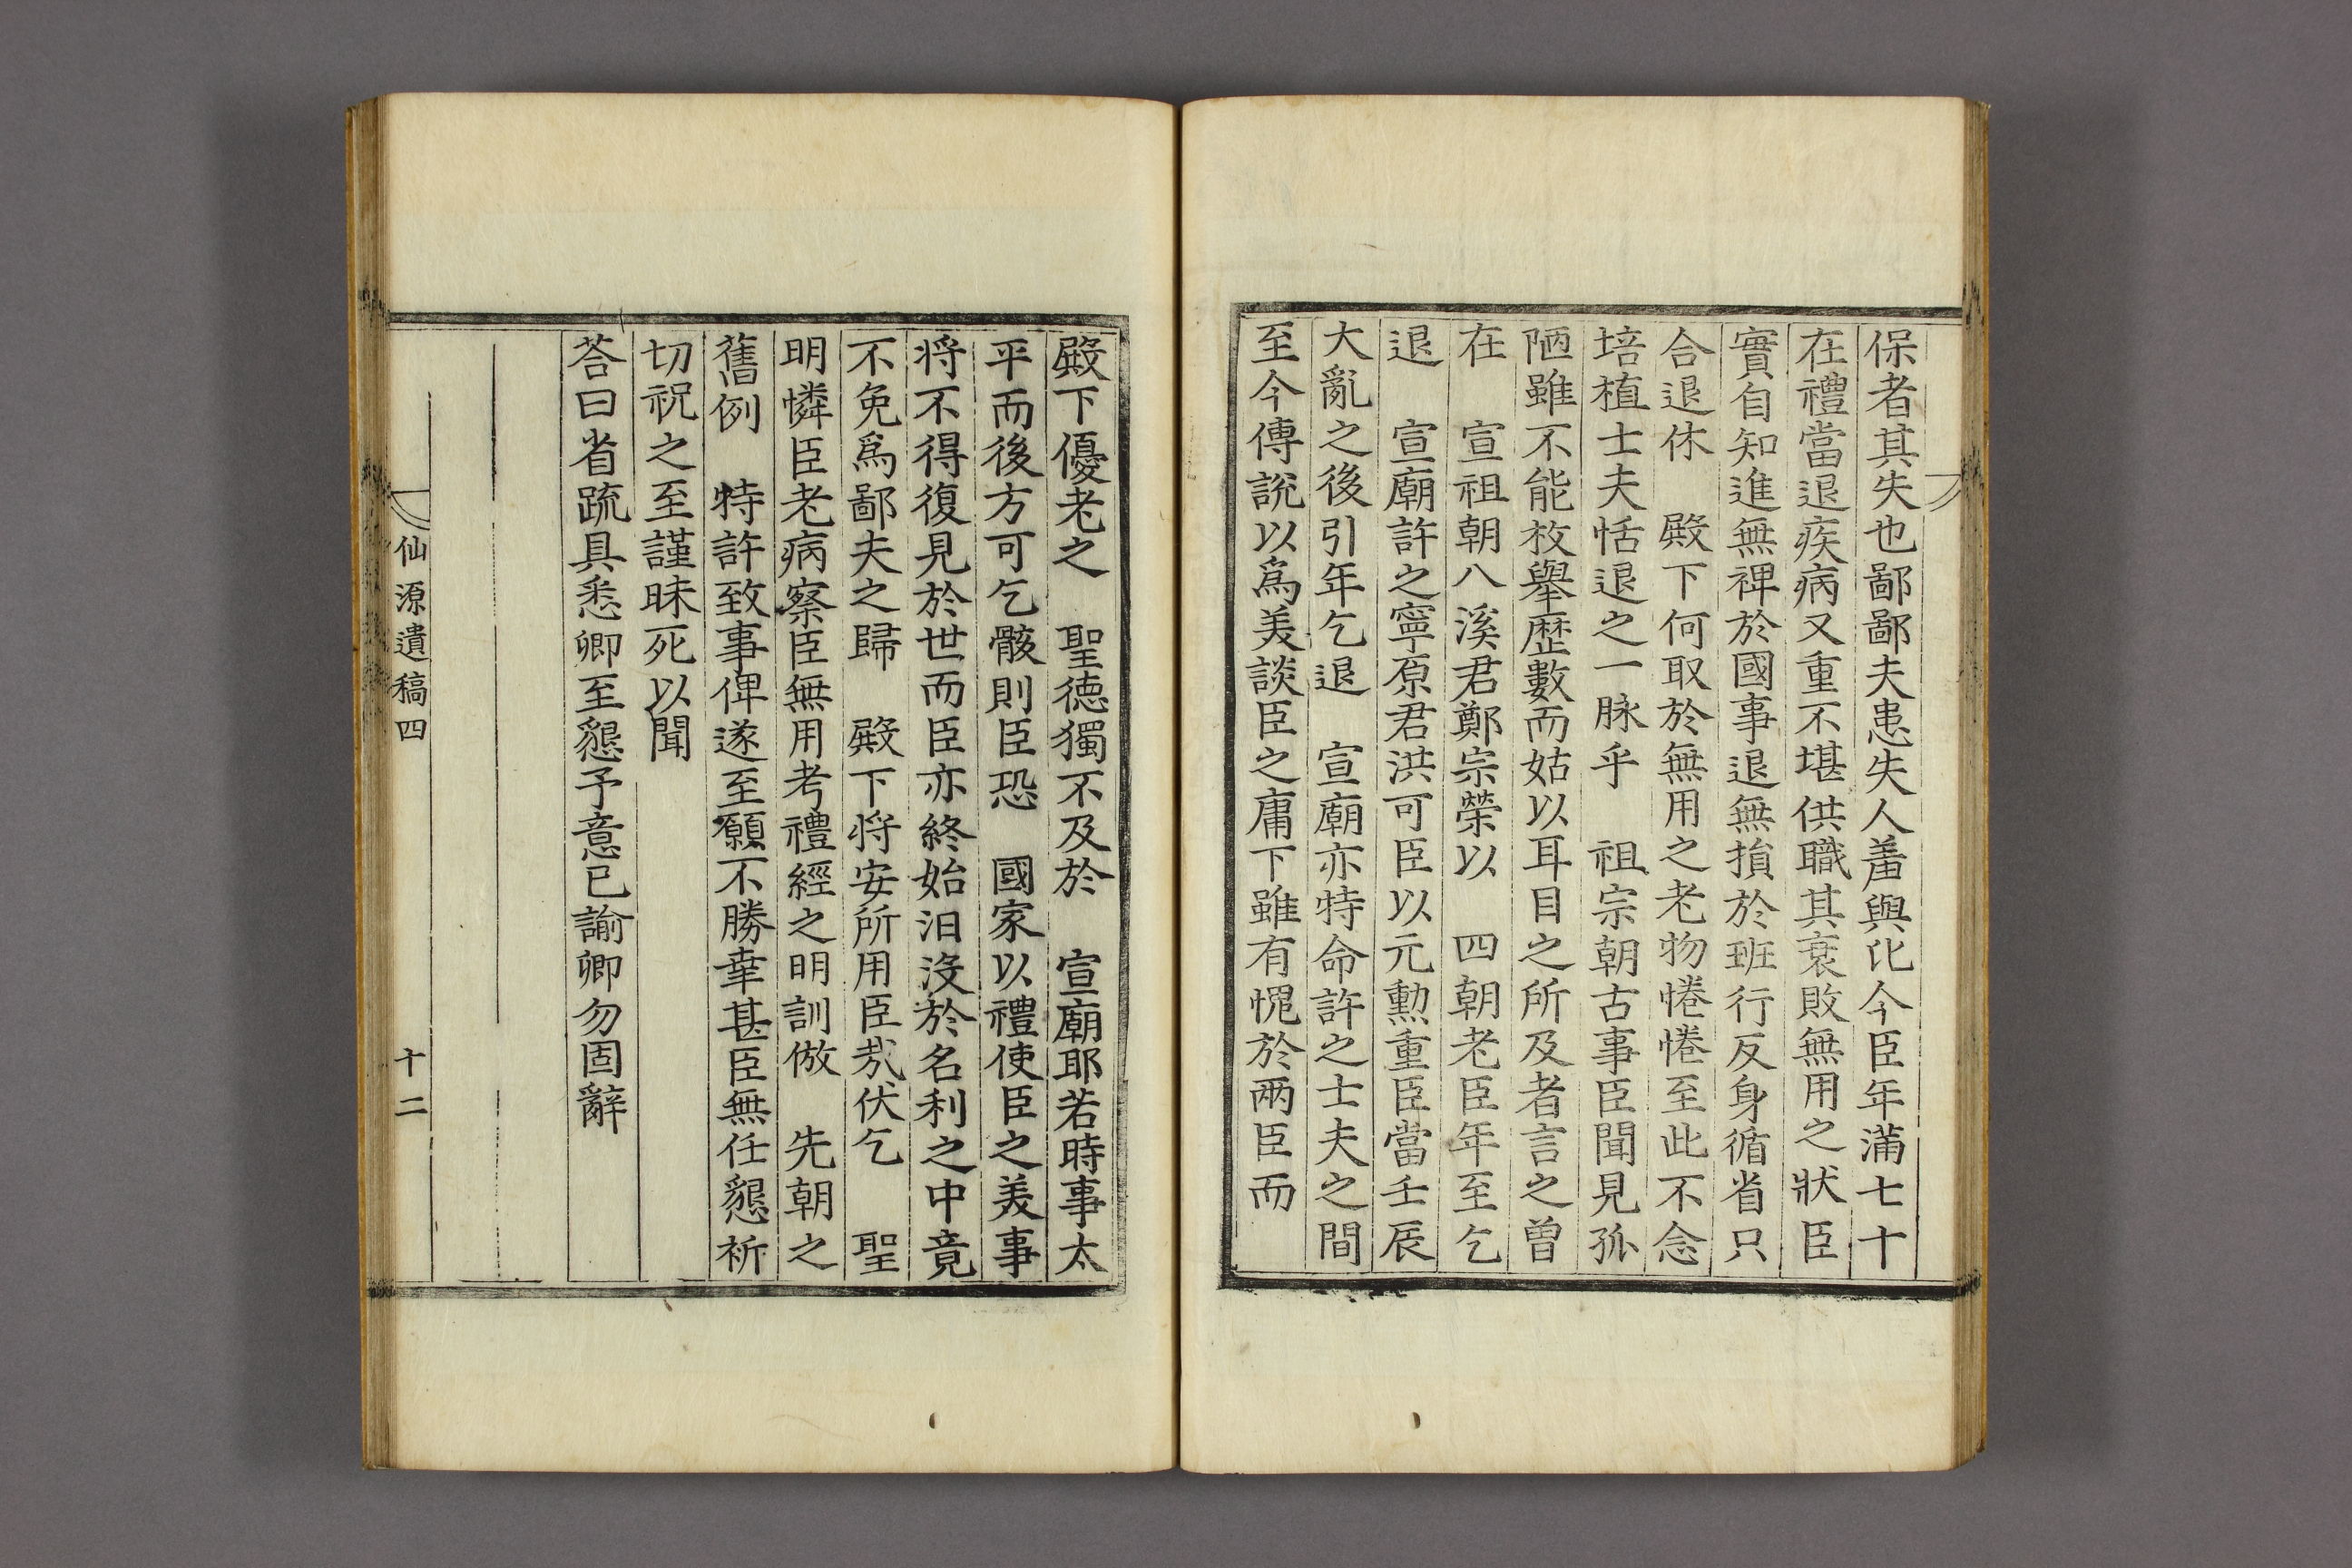 保者其失也鄙鄙夫患失人羞與比今臣年滿七十
在禮當退疾病又重不堪供職其衰敗無用之狀臣
實自知進無裨於國事退無損於班行反身循省只
合退休　殿下何取於無用之老物惓惓至此不念
培植士夫恬退之一脉乎　祖宗朝古事臣聞見孤
陋雖不能枚擧歷數而姑以耳目之所及者言之曾
在　宣祖朝八溪君鄭宗榮以　四朝老臣年至乞
退　宣廟許之寧原君洪可臣以元勳重臣當壬辰
大亂之後引年乞退　宣廟亦特命許之士夫之間
至今傳說以爲美談臣之庸下雖有愧於兩臣而
殿下優老之　聖德獨不及於　宣廟耶若時事太
平而後方可乞骸則臣恐　國家以禮使臣之美事
將不得復見於世而臣亦終始汨沒於名利之中竟
不免爲鄙夫之歸　殿下將安所用臣哉伏乞　聖
明憐臣老病察臣無用考禮經之明訓倣　先朝之
舊例　特許致事俾遂至願不勝幸甚臣無任懇祈
切祝之至謹昧死以聞
答曰省疏具悉卿至懇予意已諭卿勿固辭
仙源遺稿四　十二